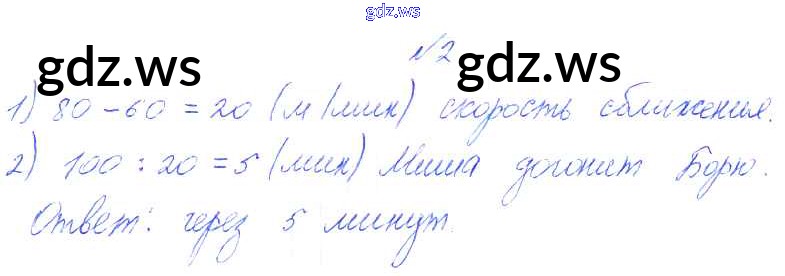 gdz.ws
№2
gdz.ws gdz.ws
1) 80 - 60 = 20 (м/мин) скорость сближения.
2) 100 : 20 = 5 (мин) Миша догонит Борю.
Ответ: через 5 минут.